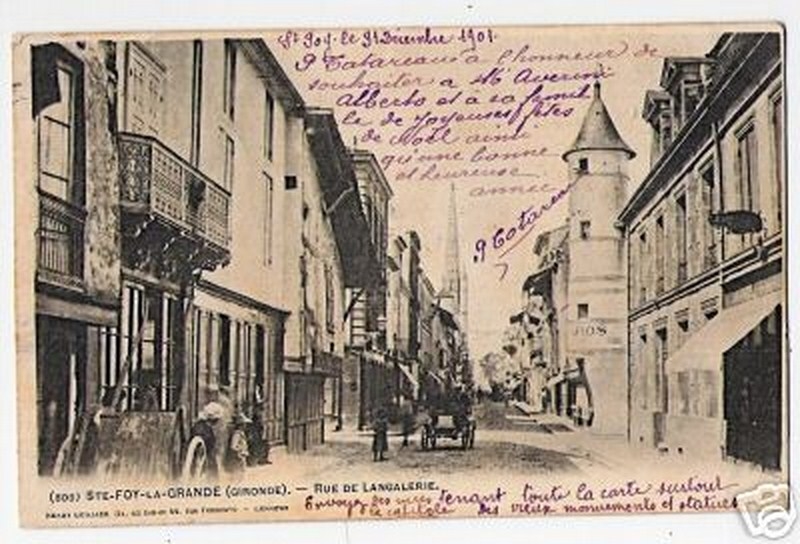 Ste Foy le 31 Décembre 1901
P Tatareau a l'honneur de
souhaiter a Mr Averini
Alberto et à sa famil
le de Joyeuses fêtes
de Noël ainsi
qu'une bonne
et heureuse
année
P Tatareau
(500) STE-FOY-LA-GRANDE (GIRONDE). — RUE DE LANGALERIE.
Envoyez des vues tenant toute la carte surtout
de capitale des vieux monuments et statues
stamps